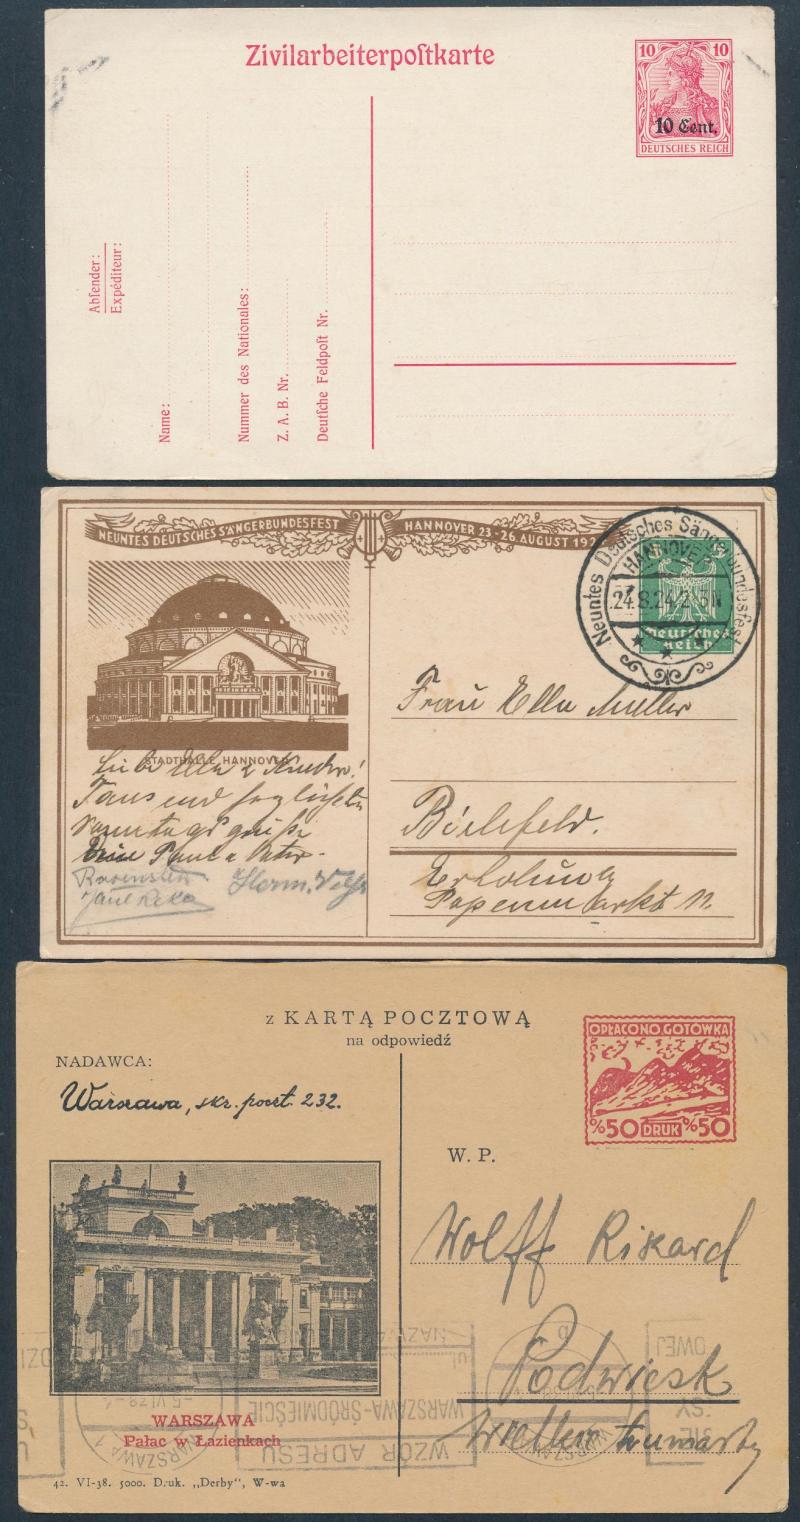 Zivilarbeiterpostkarte
10 10
10 Cent.
DEUTSCHES REICH
Absender:
Expéditeur:
Name:
Nummer des Nationales:
Z. A. B. Nr.
Deutsche Feldpost Nr.
NEUNTES DEUTSCHES SÄNGERBUNDESFEST
HANNOVER 23-26 AUGUST 192
Neuntes Deutsches Sängerbundesfest
HANNOVER
24.8.24.2-3N
Deutsches
Reich
STADTHALLE HANNOVER
Liebe Ella & Kinder!
Tausend herzliche
Sonntagsgrüße
Frau Ella Müller
Bielefeld.
Papenmarkt 11.
z KARTĄ POCZTOWĄ
na odpowiedź
NADAWCA:
Warszawa, skr. poczt. 232.
OPŁACONO GOTÓWKĄ
%50 DRUK %50
W. P.
Wolff Rikard
Podwiesk
WZÓR ADRESU
WARSZAWA-ŚRÓDMIEŚCIE
ul.
WARSZAWA 1
WARSZAWA
Pałac w Łazienkach
42. VI-38. 5000. Druk. „Derby", W-wa